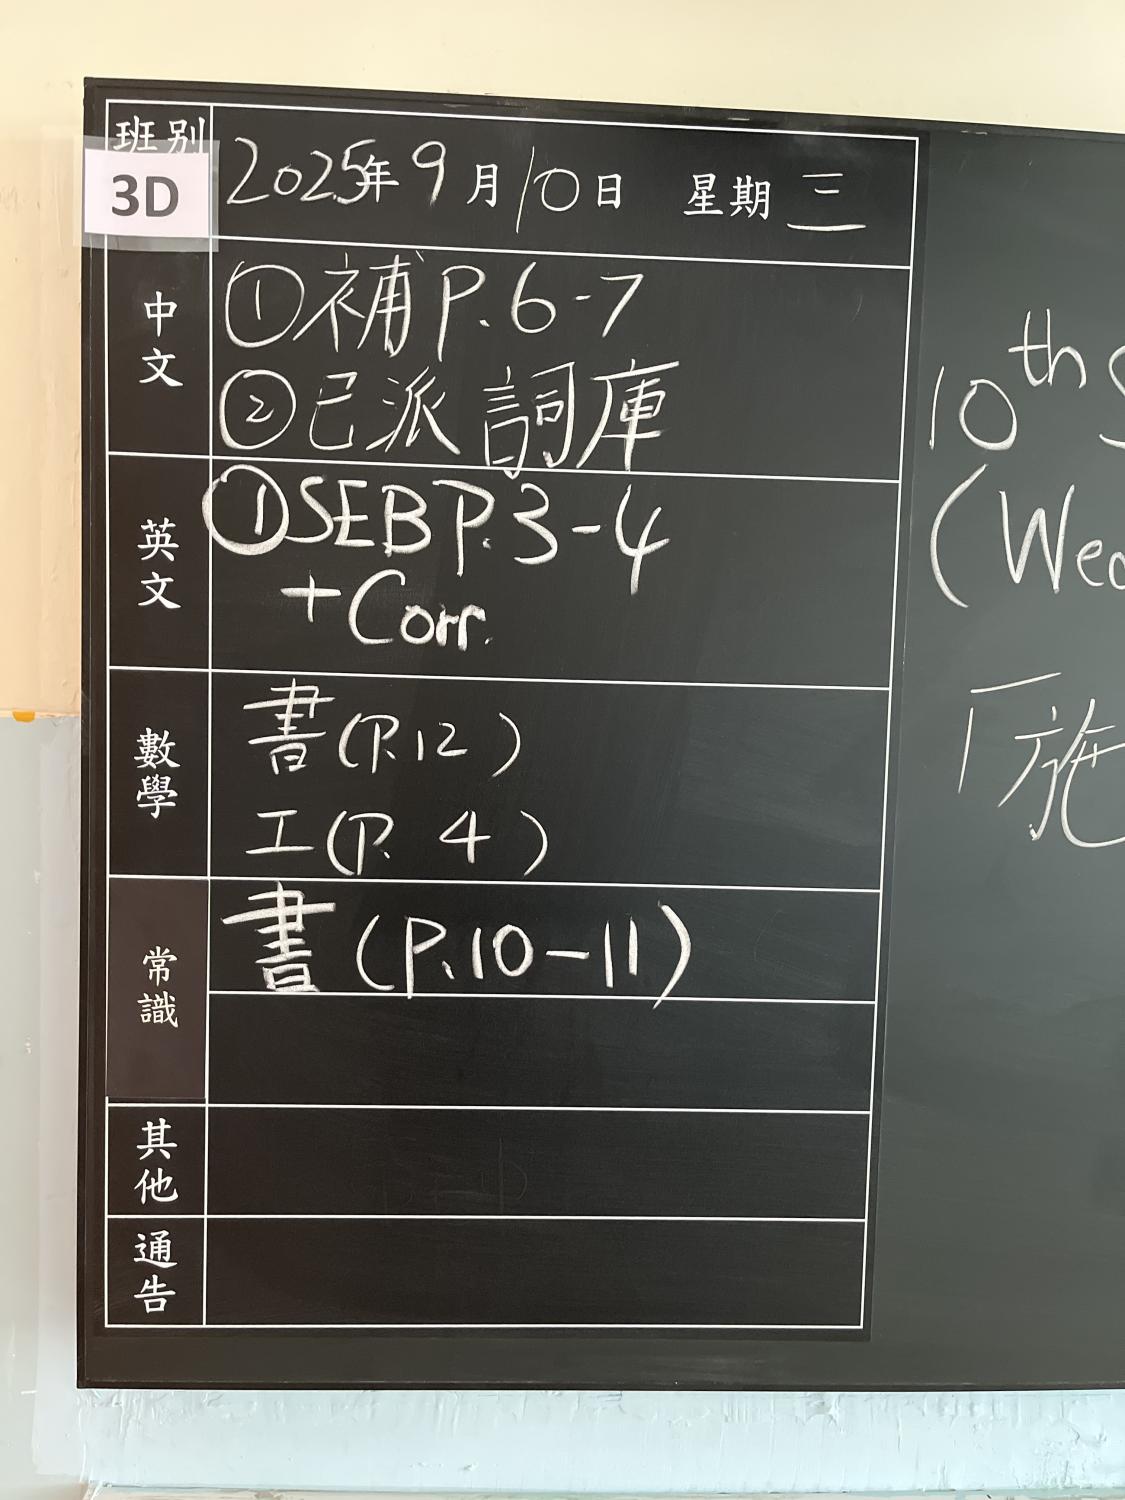 班別
3D
2025年9月10日 星期三
中文
①補P.6-7
②已派詞庫
英文
①SEB P.3-4
+Corr.
數學
書(P.12)
工(P.4)
常識
書(P.10-11)
其他
通告
10th S
(Wed
「施